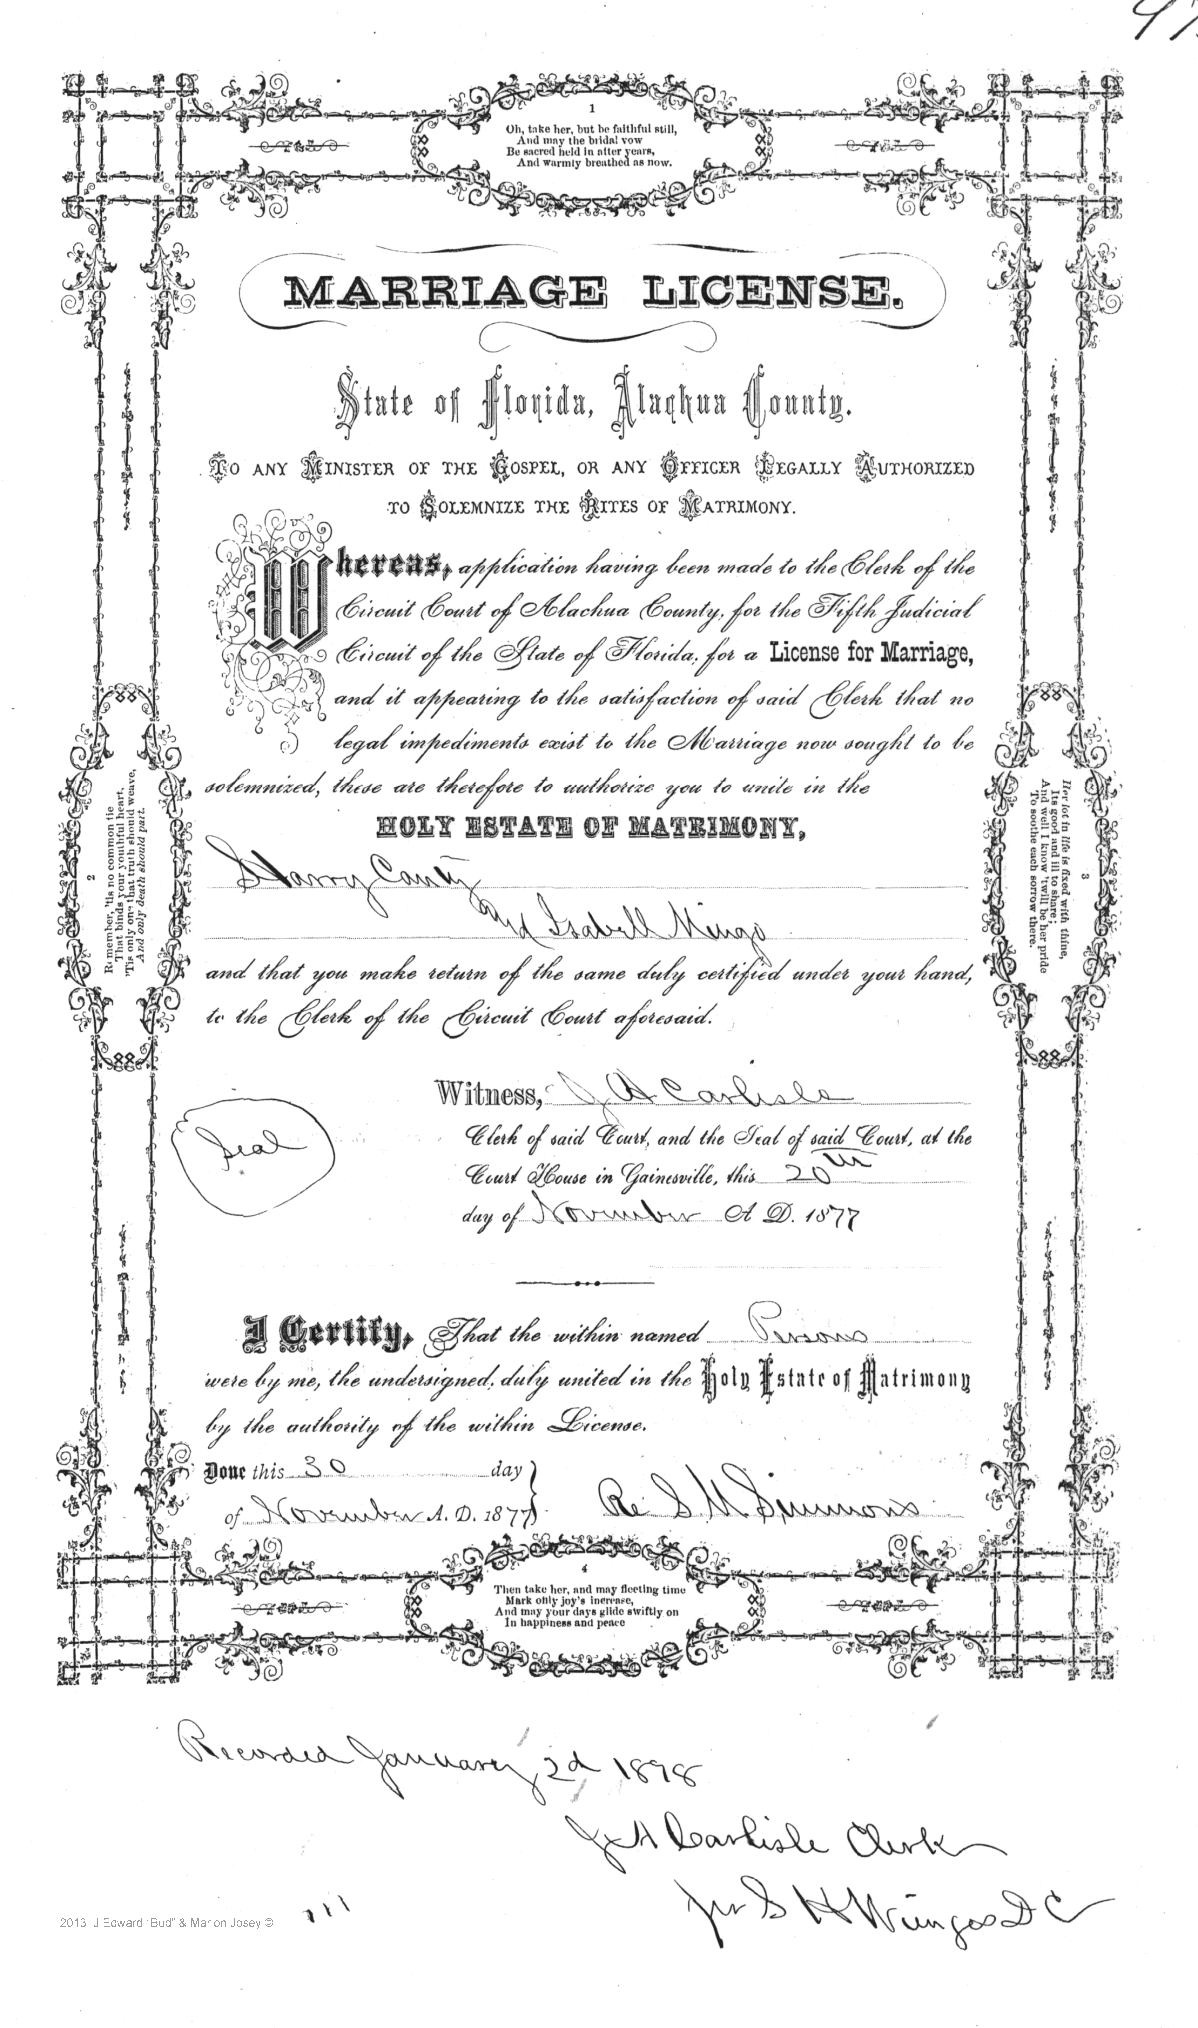 1
Oh, take her, but be faithful still,
And may the bridal vow
Be sacred held in after years,
And warmly breathed as now.
MARRIAGE LICENSE.
State of Florida, Alachua County.
TO ANY MINISTER OF THE GOSPEL, OR ANY OFFICER LEGALLY AUTHORIZED
TO SOLEMNIZE THE RITES OF MATRIMONY.
Whereas, application having been made to the Clerk of the
Circuit Court of Alachua County, for the Fifth Judicial
Circuit of the State of Florida, for a License for Marriage,
and it appearing to the satisfaction of said Clerk that no
legal impediments exist to the Marriage now sought to be
solemnized, these are therefore to authorize you to unite in the
HOLY ESTATE OF MATRIMONY,
Harry Canty
and Isabell Mingo
and that you make return of the same duly certified under your hand,
to the Clerk of the Circuit Court aforesaid.
2
Remember, 'tis no common tie
That binds your youthful heart,
'Tis only one that truth should weave,
And only death should part.
3
Her lot in life is fixed with thine,
Its good and ill to share;
And well I know 'twill be her pride
To soothe each sorrow there.
Seal
Witness, J A Carlisle
Clerk of said Court, and the Seal of said Court, at the
Court House in Gainesville, this 20th
day of November A D. 1877
I Certify, That the within named Persons
were by me, the undersigned, duly united in the Holy Estate of Matrimony
by the authority of the within License.
Done this 30 day
of November A. D. 1877
Re S M Simmons
4
Then take her, and may fleeting time
Mark only joy's increase,
And may your days glide swiftly on
In happiness and peace
Recorded January 2d 1878
J A Carlisle Clerk
D C
2013 J Edward "Bud" & Marion Josey ©